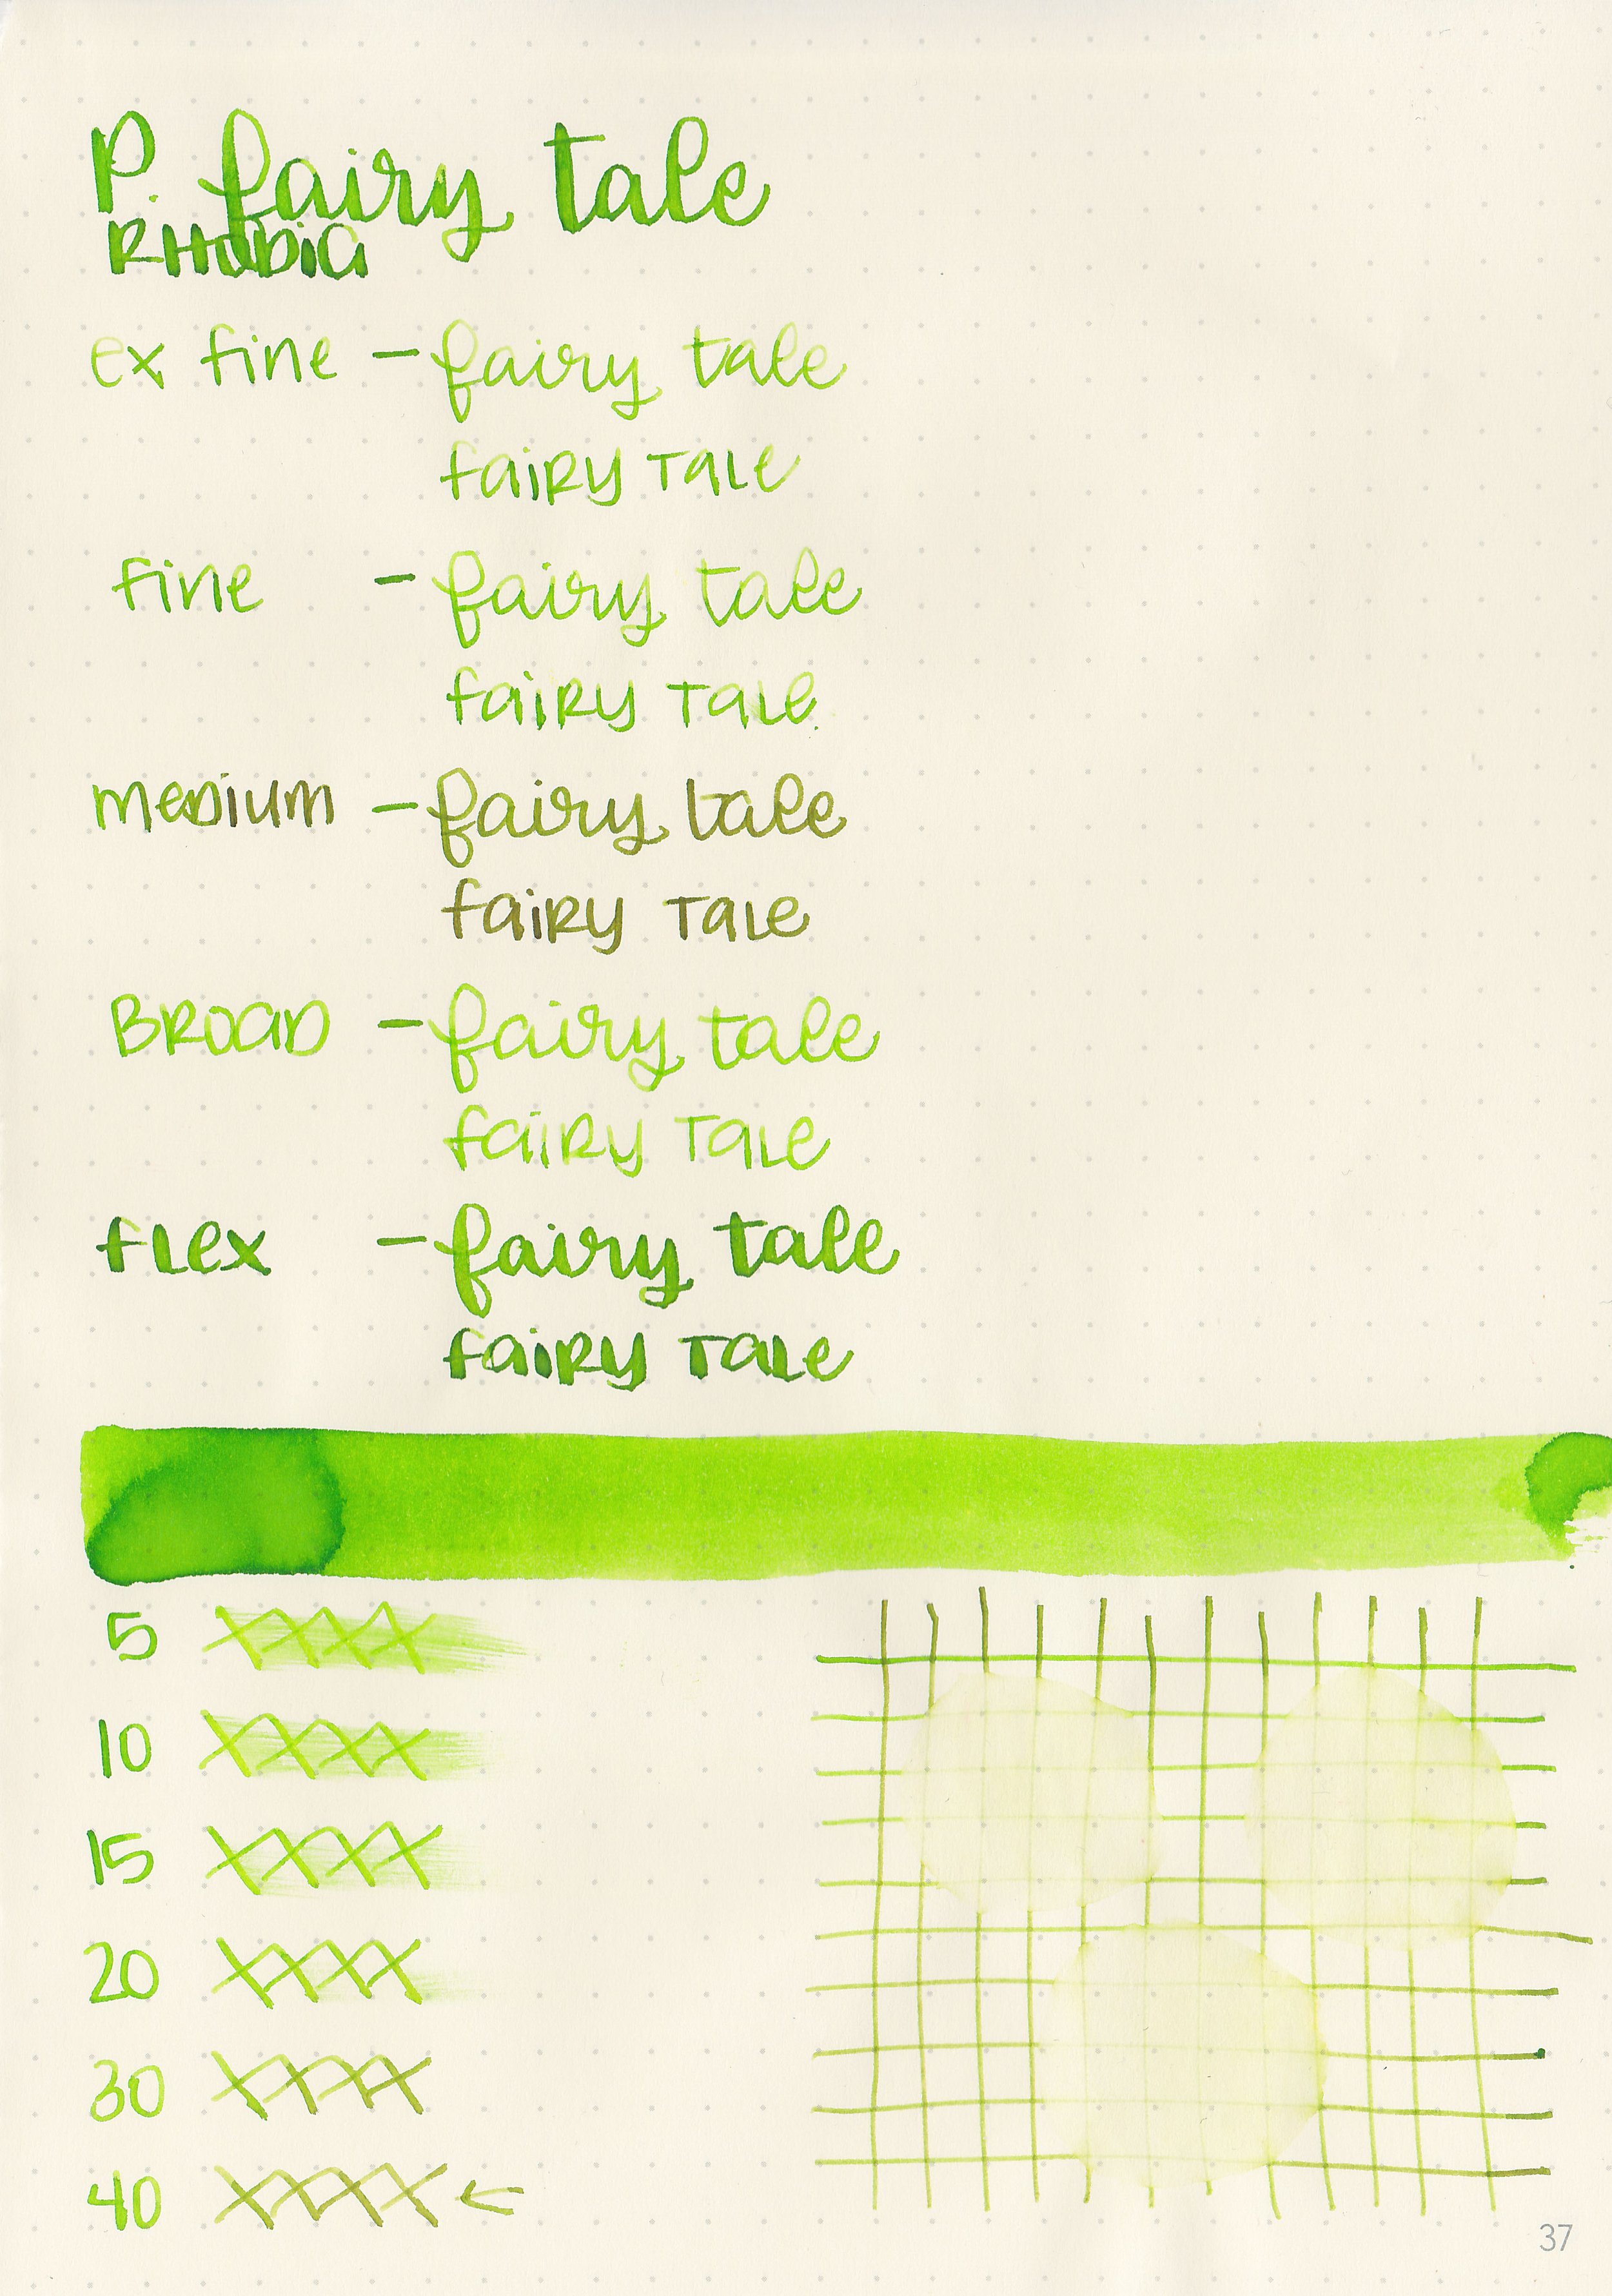 P. fairy tale
RHODIA
ex fine - fairy tale
fairy tale
fine - fairy tale
fairy tale
medium - fairy tale
fairy tale
Broad - fairy tale
fairy tale
flex - fairy tale
fairy tale
5 XXXX
10 XXXX
15 XXXX
20 XXXX
30 XXXX
40 XXXX ←
37